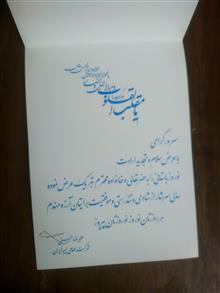 یا مقلب القلوب
سرور گرامی
با عرض سلام و تجدید ارادت
نوروز باستانی را به حضرتعالی و خانواده محترم تبریک عرض نموده
سالی سرشار از شادی و تندرستی و موفقیت برایتان آرزومندم
هر روزتان نوروز نوروزتان پیروز
علیرضا
شرکت